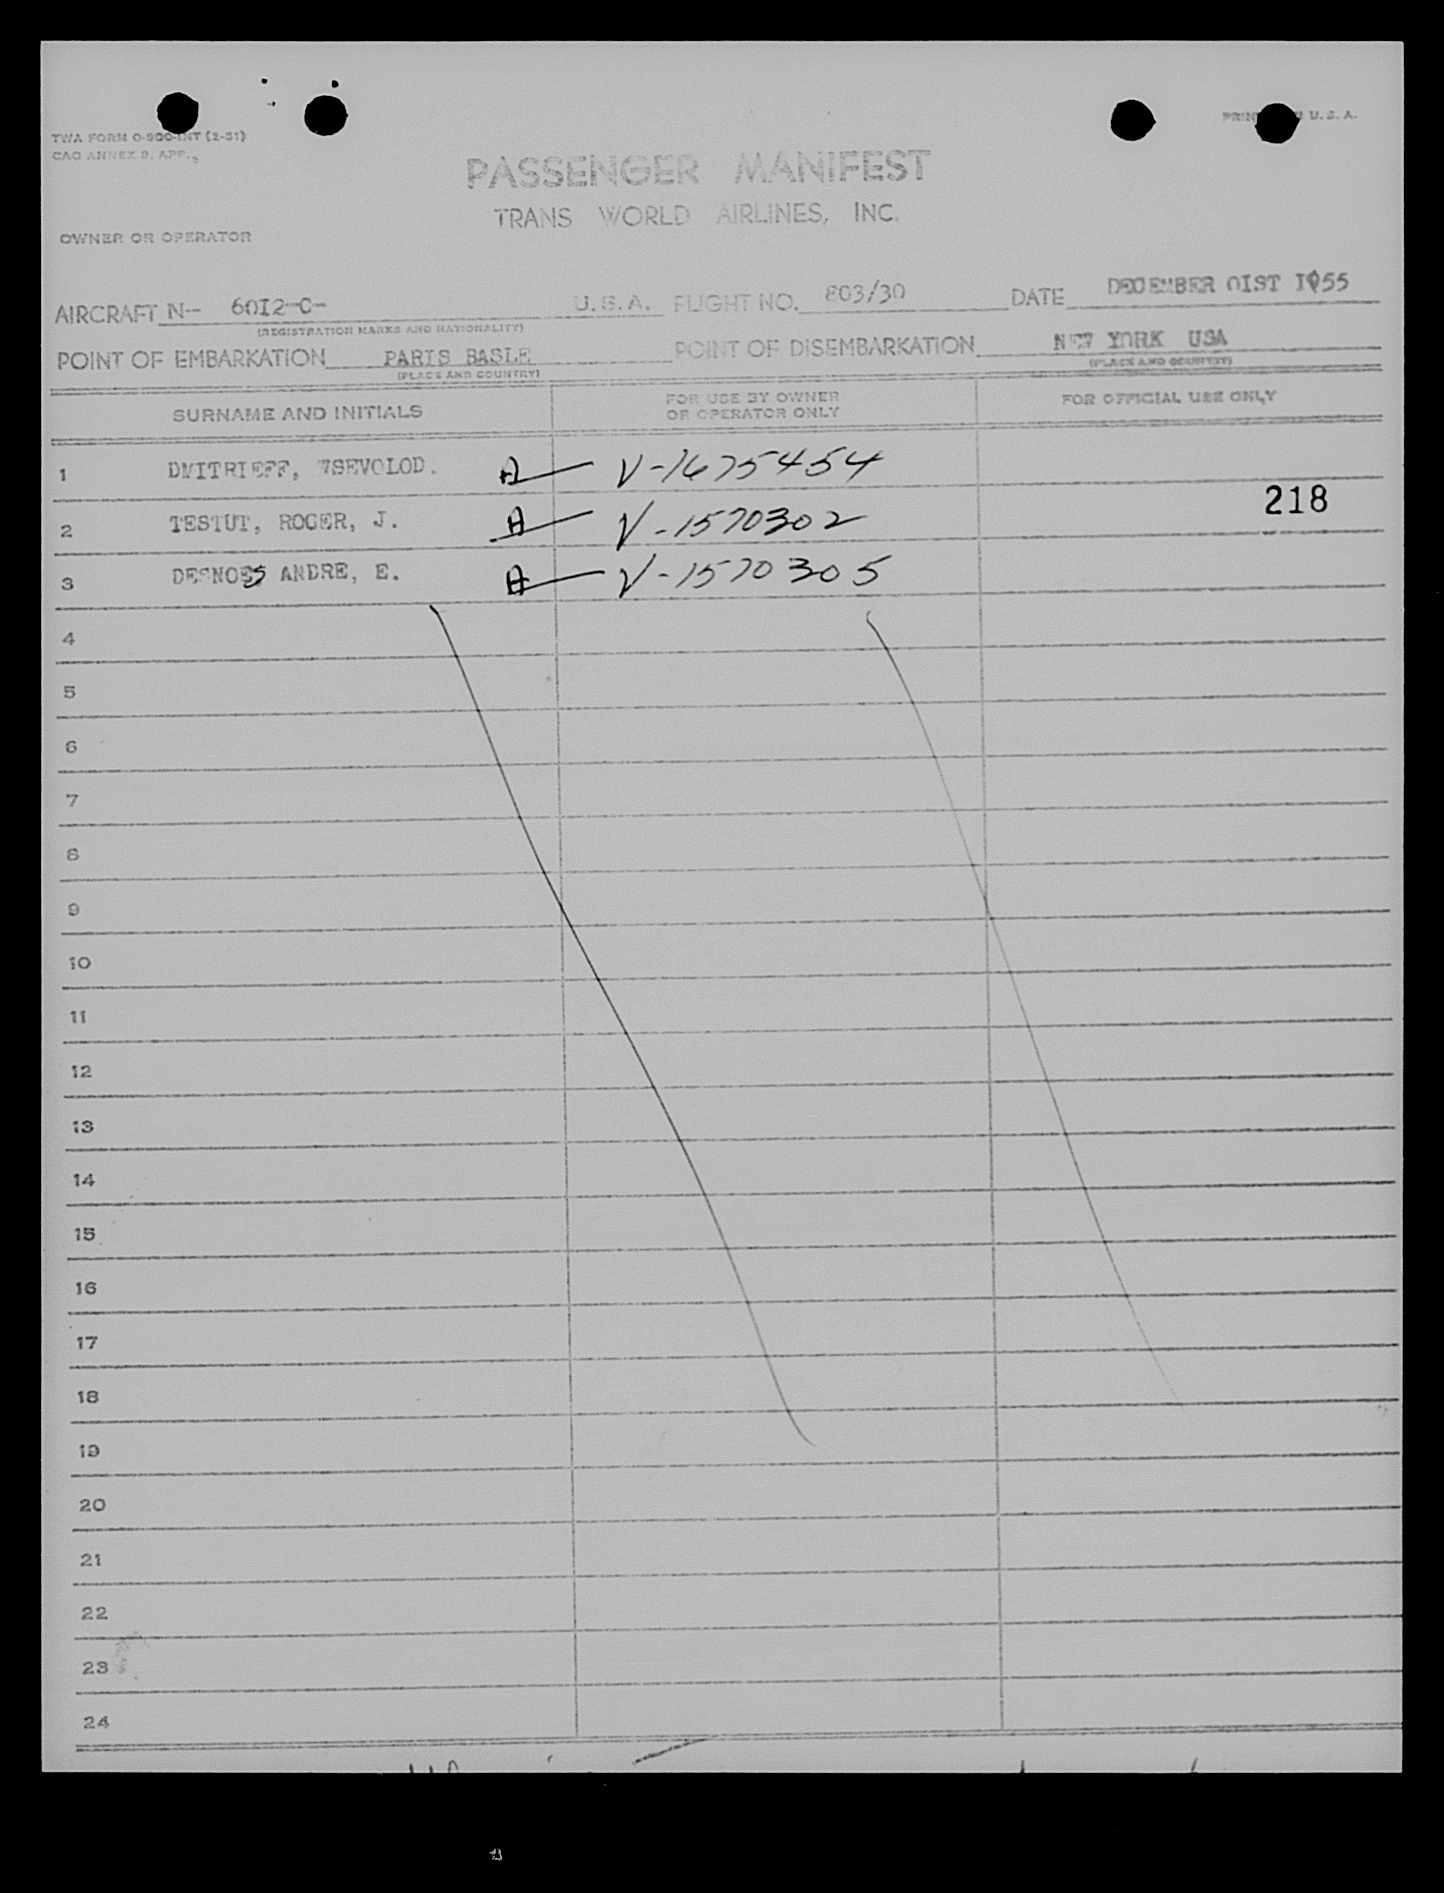 TWA FORM O-900-INT (2-51)
PRINTED IN U. S. A.
PASSENGER MANIFEST
TRANS WORLD AIRLINES, INC.
OWNER OR OPERATOR
AIRCRAFT N-- 60I2-C- U.S.A. FLIGHT NO. 803/30 DATE DECEMBER 0IST I955
(REGISTRATION MARKS AND NATIONALITY)
POINT OF EMBARKATION PARIS BASLE POINT OF DISEMBARKATION NEW YORK USA
(PLACE AND COUNTRY) (PLACE AND COUNTRY)
SURNAME AND INITIALS FOR USE BY OWNER OR OPERATOR ONLY FOR OFFICIAL USE ONLY
1 DMITRIEFF, WSEVOLOD. A V-1675454
218
2 TESTUT, ROGER, J. A V-1570302
3 DESNOES ANDRE, E. A V-1570305
4
5
6
7
8
9
10
11
12
13
14
15
16
17
18
19
20
21
22
23
24